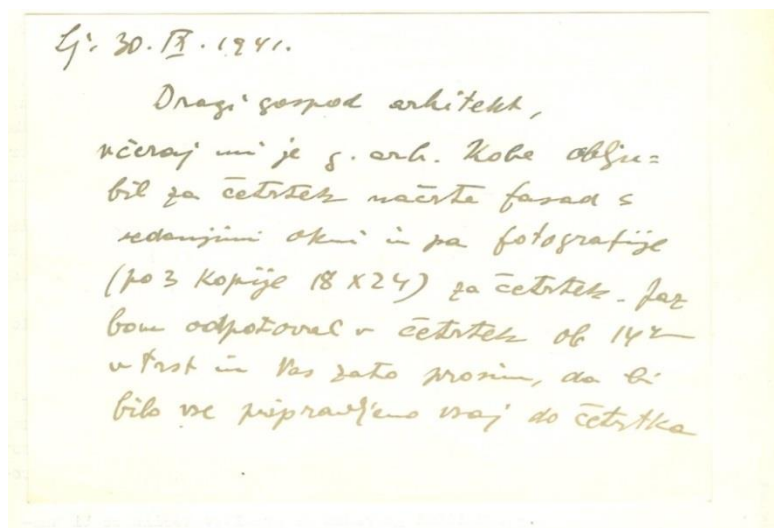 Lj. 30. IX. 1941.
Dragi gospod arhitekt,
včeraj mi je g. arh. Kobe oblju=
bil za četrtek načrte fasad s
sedanjimi okni in pa fotografije
(po 3 kopije 18 x 24) za četrtek. Jaz
bom odpotoval v četrtek ob 14h
v Trst in Vas zato prosim, da bi
bilo vse pripravljeno vsaj do četrtka